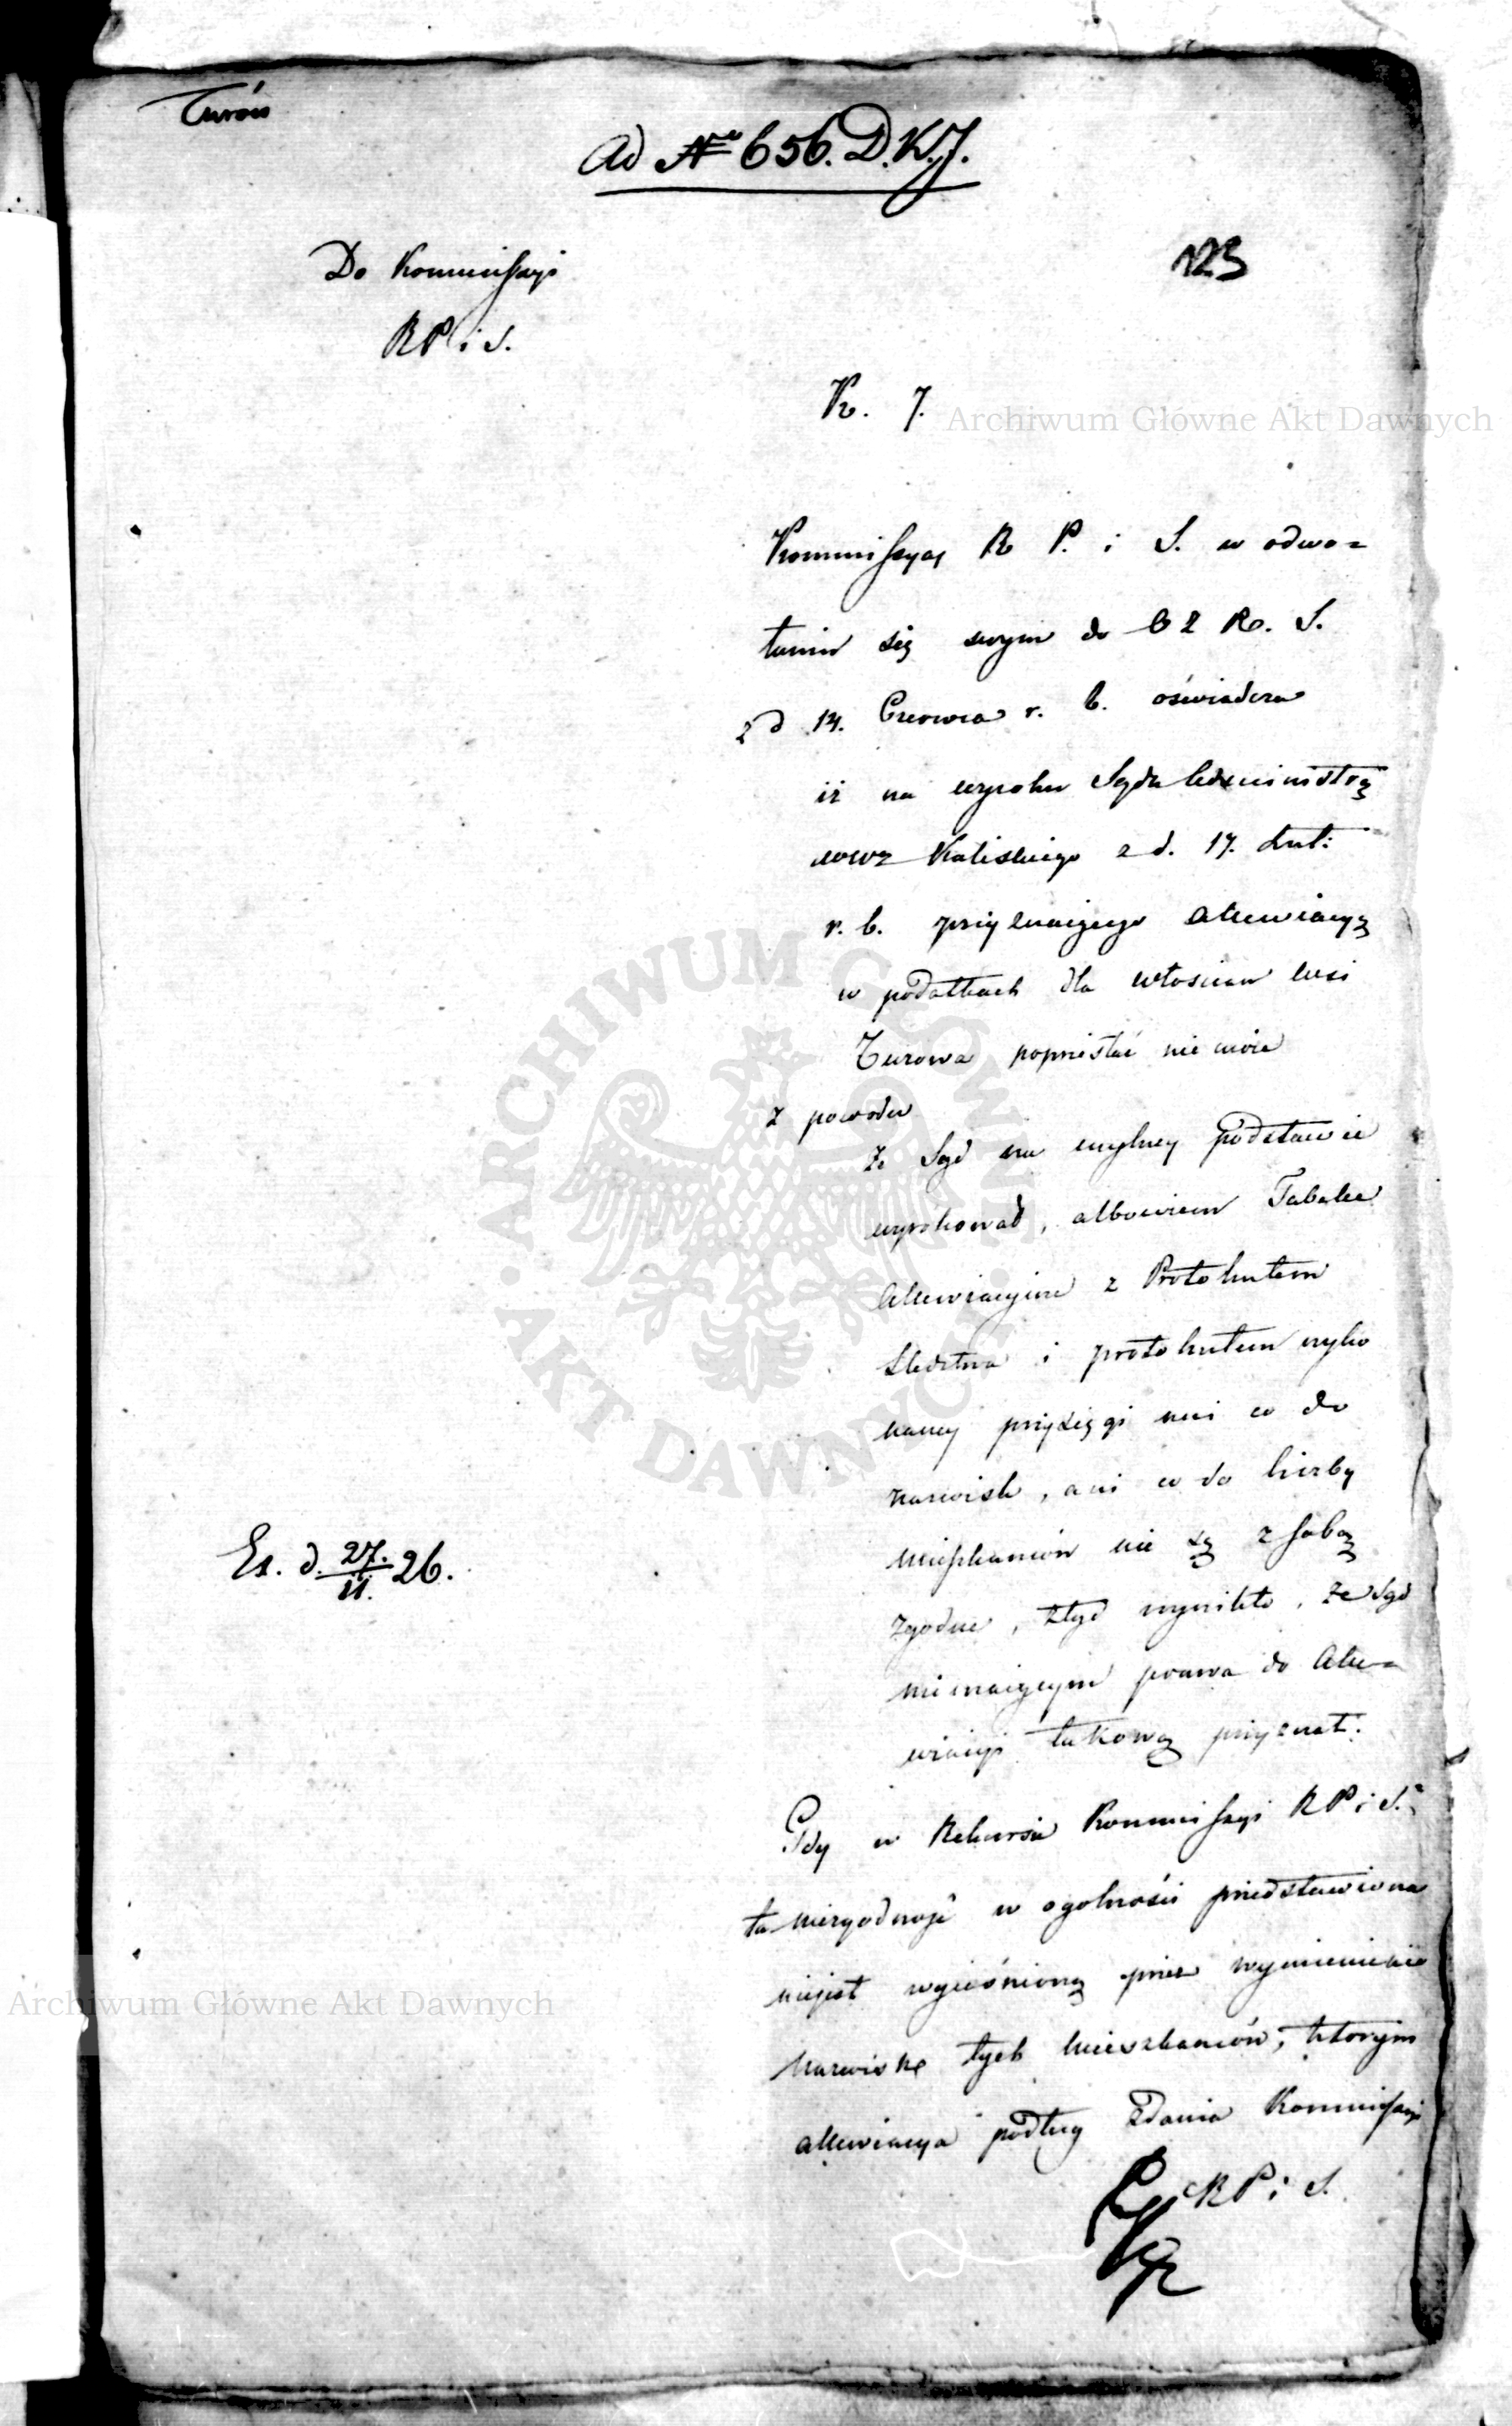 Turów
Ad No 656. D.K.J.
123
Do Kommissyi
R P i S.
K. J.
Archiwum Główne Akt Dawnych
Kommissya R P. i S. w odwo=
łaniu się swym do R. S.
z d 14. Czerwca r. b. oświadcza
iż na wyroku Sądu Administra
wowz Kaliskiego z d. 17. Lut:
r. b. przyznaiącego allewiacyą
w podatkach dla włościan wsi
Turowa poprzestać nie może
z powodu
że Sąd na mylney podstawie
wyrokował, albowiem Tabelle
allewiacyine z Protokułem
śledztwa i protokułem wyko
naney przysięgi ani co do
nazwisk, ani co do liczby
mieszkańców nie są z sobą
zgodne, ztąd wynikło, że Sąd
niemaiącym prawa do alle=
wiacyi takową przyznał.
Gdy w Rekursie Kommissyi R P i S.
ta niezgodność w ogolności przedstawiona
nieiest wyiaśnioną przez wymienienie
nazwisk tych mieszkańców, którym
allewiacya podług zdania Kommissyi
R P i S.
Ex. d. 27./11. 26.
Archiwum Główne Akt Dawnych
ARCHIWUM GŁÓWNE AKT DAWNYCH